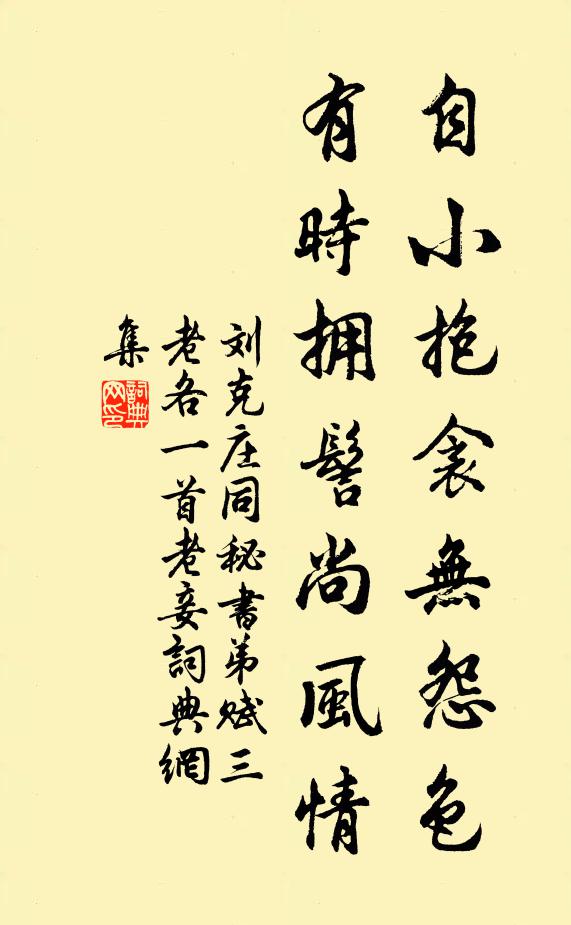 自小抱衾無怨色
有時拥髻尚風情
刘克庄同秘書弟赋三
老各一首老妾詞典網
集
詞典網印